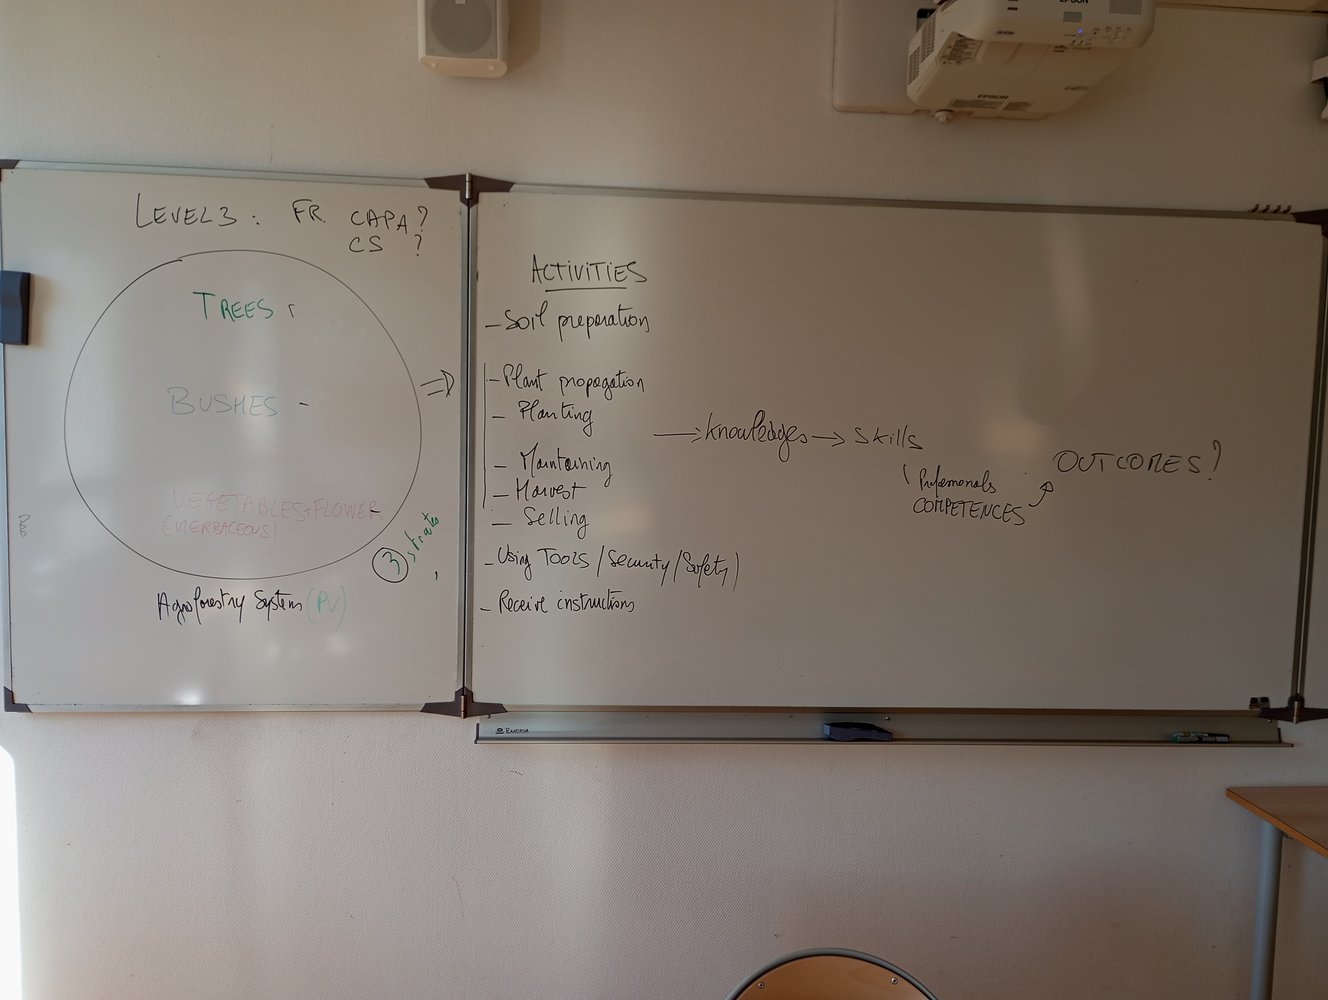 LEVEL 3 : FR. CAPA ?
CS ?
TREES :
BUSHES -
VEGETABLES + FLOWERS
(HERBACEOUS)
3 strates
Agroforestry System (PV)
⇒
ACTIVITIES
- Soil preparation
- Plant propagation
- Planting
- Maintaining
- Harvest
- Selling
- Using TOOLS / Security / Safety)
- Receive instructions
→ knowledges → skills
( Professionals
COMPETENCES
OUTCOMES ?
EPSON
EPSON